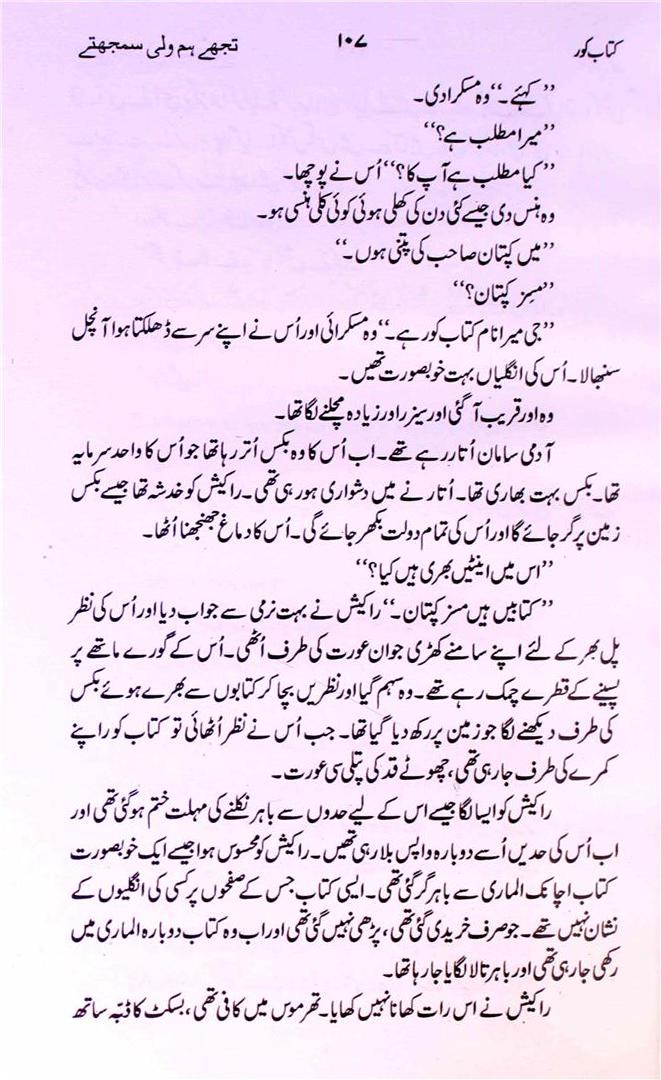 کتاب کور ۱۰۷ تجھے ہم ولی سمجھتے
”کہئے۔“ وہ مسکرا دی۔
”میرا مطلب ہے؟“
”کیا مطلب ہے آپ کا؟“ اُس نے پوچھا۔
وہ ہنس دی جیسے کئی دن کی کھلی ہوئی کوئی کلی ہنسی ہو۔
”میں کپتان صاحب کی پتنی ہوں۔“
”مِسز کپتان؟“
”جی میرا نام کتاب کور ہے۔“ وہ مسکرائی اور اُس نے اپنے سر سے ڈھلکتا ہوا آنچل
سنبھالا۔ اُس کی انگلیاں بہت خوبصورت تھیں۔
وہ اور قریب آ گئی اور سیزر اور زیادہ مچلنے لگا تھا۔
آدمی سامان اُتار رہے تھے۔ اب اُس کا وہ بکس اُتر رہا تھا جو اُس کا واحد سرمایہ
تھا۔ بکس بہت بھاری تھا۔ اُتارنے میں دشواری ہو رہی تھی۔ راکیش کو خدشہ تھا جیسے بکس
زمین پر گر جائے گا اور اُس کی تمام دولت بکھر جائے گی۔ اُس کا دماغ جھنجھنا اُٹھا۔
”اس میں اینٹیں بھری ہیں کیا؟“
”کتابیں ہیں مسز کپتان۔“ راکیش نے بہت نرمی سے جواب دیا اور اُس کی نظر
پل بھر کے لئے اپنے سامنے کھڑی جوان عورت کی طرف اُٹھی۔ اُس کے گورے ماتھے پر
پسینے کے قطرے چمک رہے تھے۔ وہ سہم گیا اور نظریں بچا کر کتابوں سے بھرے ہوئے بکس
کی طرف دیکھنے لگا جو زمین پر رکھ دیا گیا تھا۔ جب اُس نے نظر اُٹھائی تو کتاب کور اپنے
کمرے کی طرف جا رہی تھی، چھوٹے قد کی پتلی سی عورت۔
راکیش کو ایسا لگا جیسے اس کے لیے حدوں سے باہر نکلنے کی مہلت ختم ہو گئی تھی اور
اب اُس کی حدیں اُسے دوبارہ واپس بلا رہی تھیں۔ راکیش کو محسوس ہوا جیسے ایک خوبصورت
کتاب اچانک الماری سے باہر گر گئی تھی۔ ایسی کتاب جس کے صفحوں پر کسی کی انگلیوں کے
نشان نہیں تھے۔ جو صرف خریدی گئی تھی، پڑھی نہیں گئی تھی اور اب وہ کتاب دوبارہ الماری میں
رکھی جا رہی تھی اور باہر تالا لگایا جا رہا تھا۔
راکیش نے اس رات کھانا نہیں کھایا۔ تھرموس میں کافی تھی، بسکٹ کا ڈبّہ ساتھ